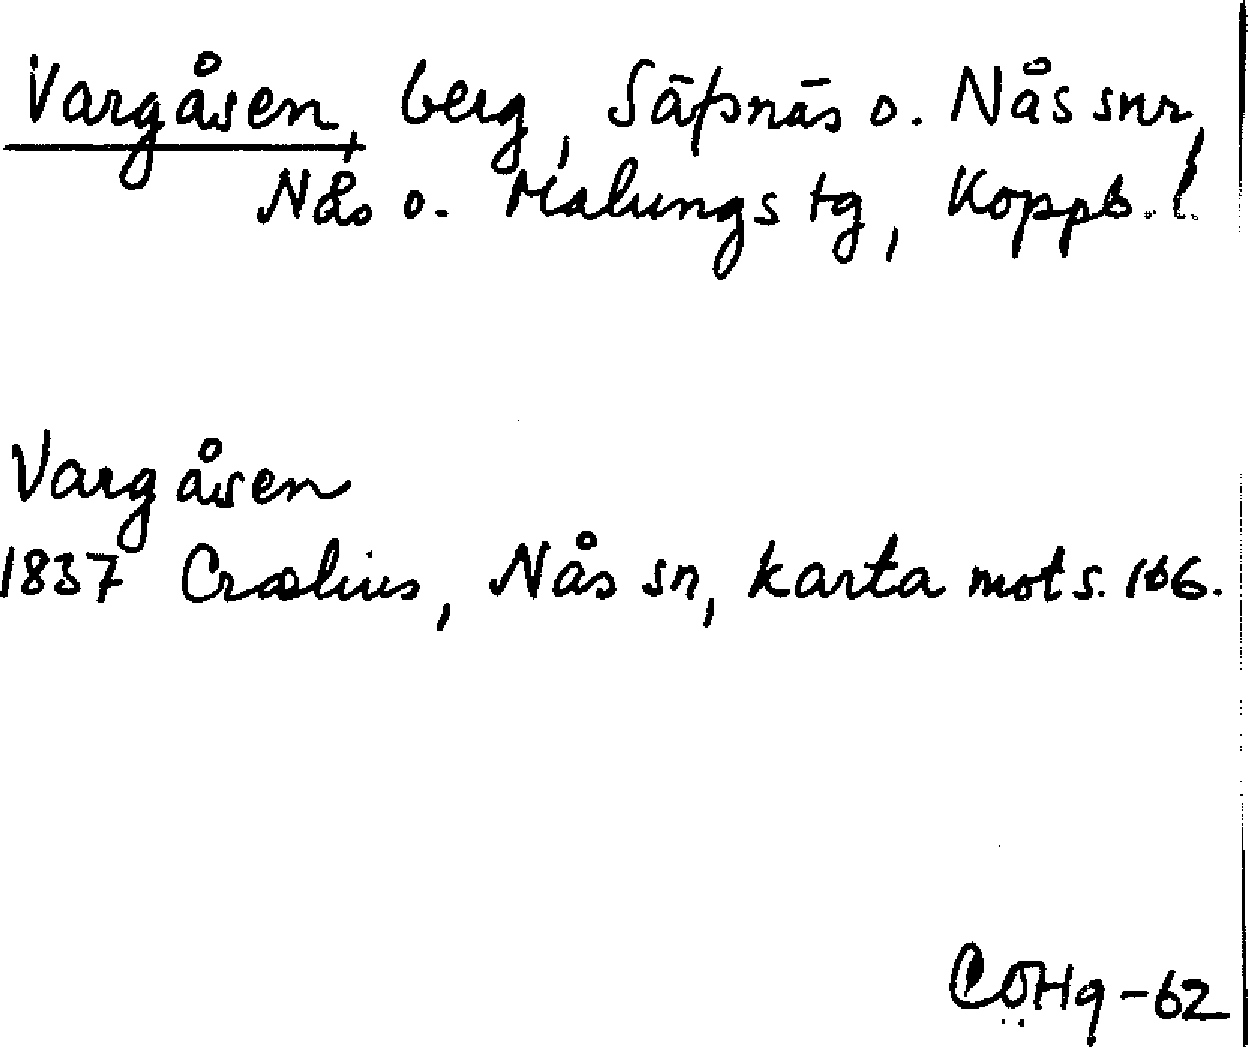 Vargåsen, berg, Säfsnäs o. Nås snr,
Nås o. Malungs tg, Koppb. l.
Vargåsen
1837 Crælius, Nås sn, karta mot s. 106.
CÖHg-62